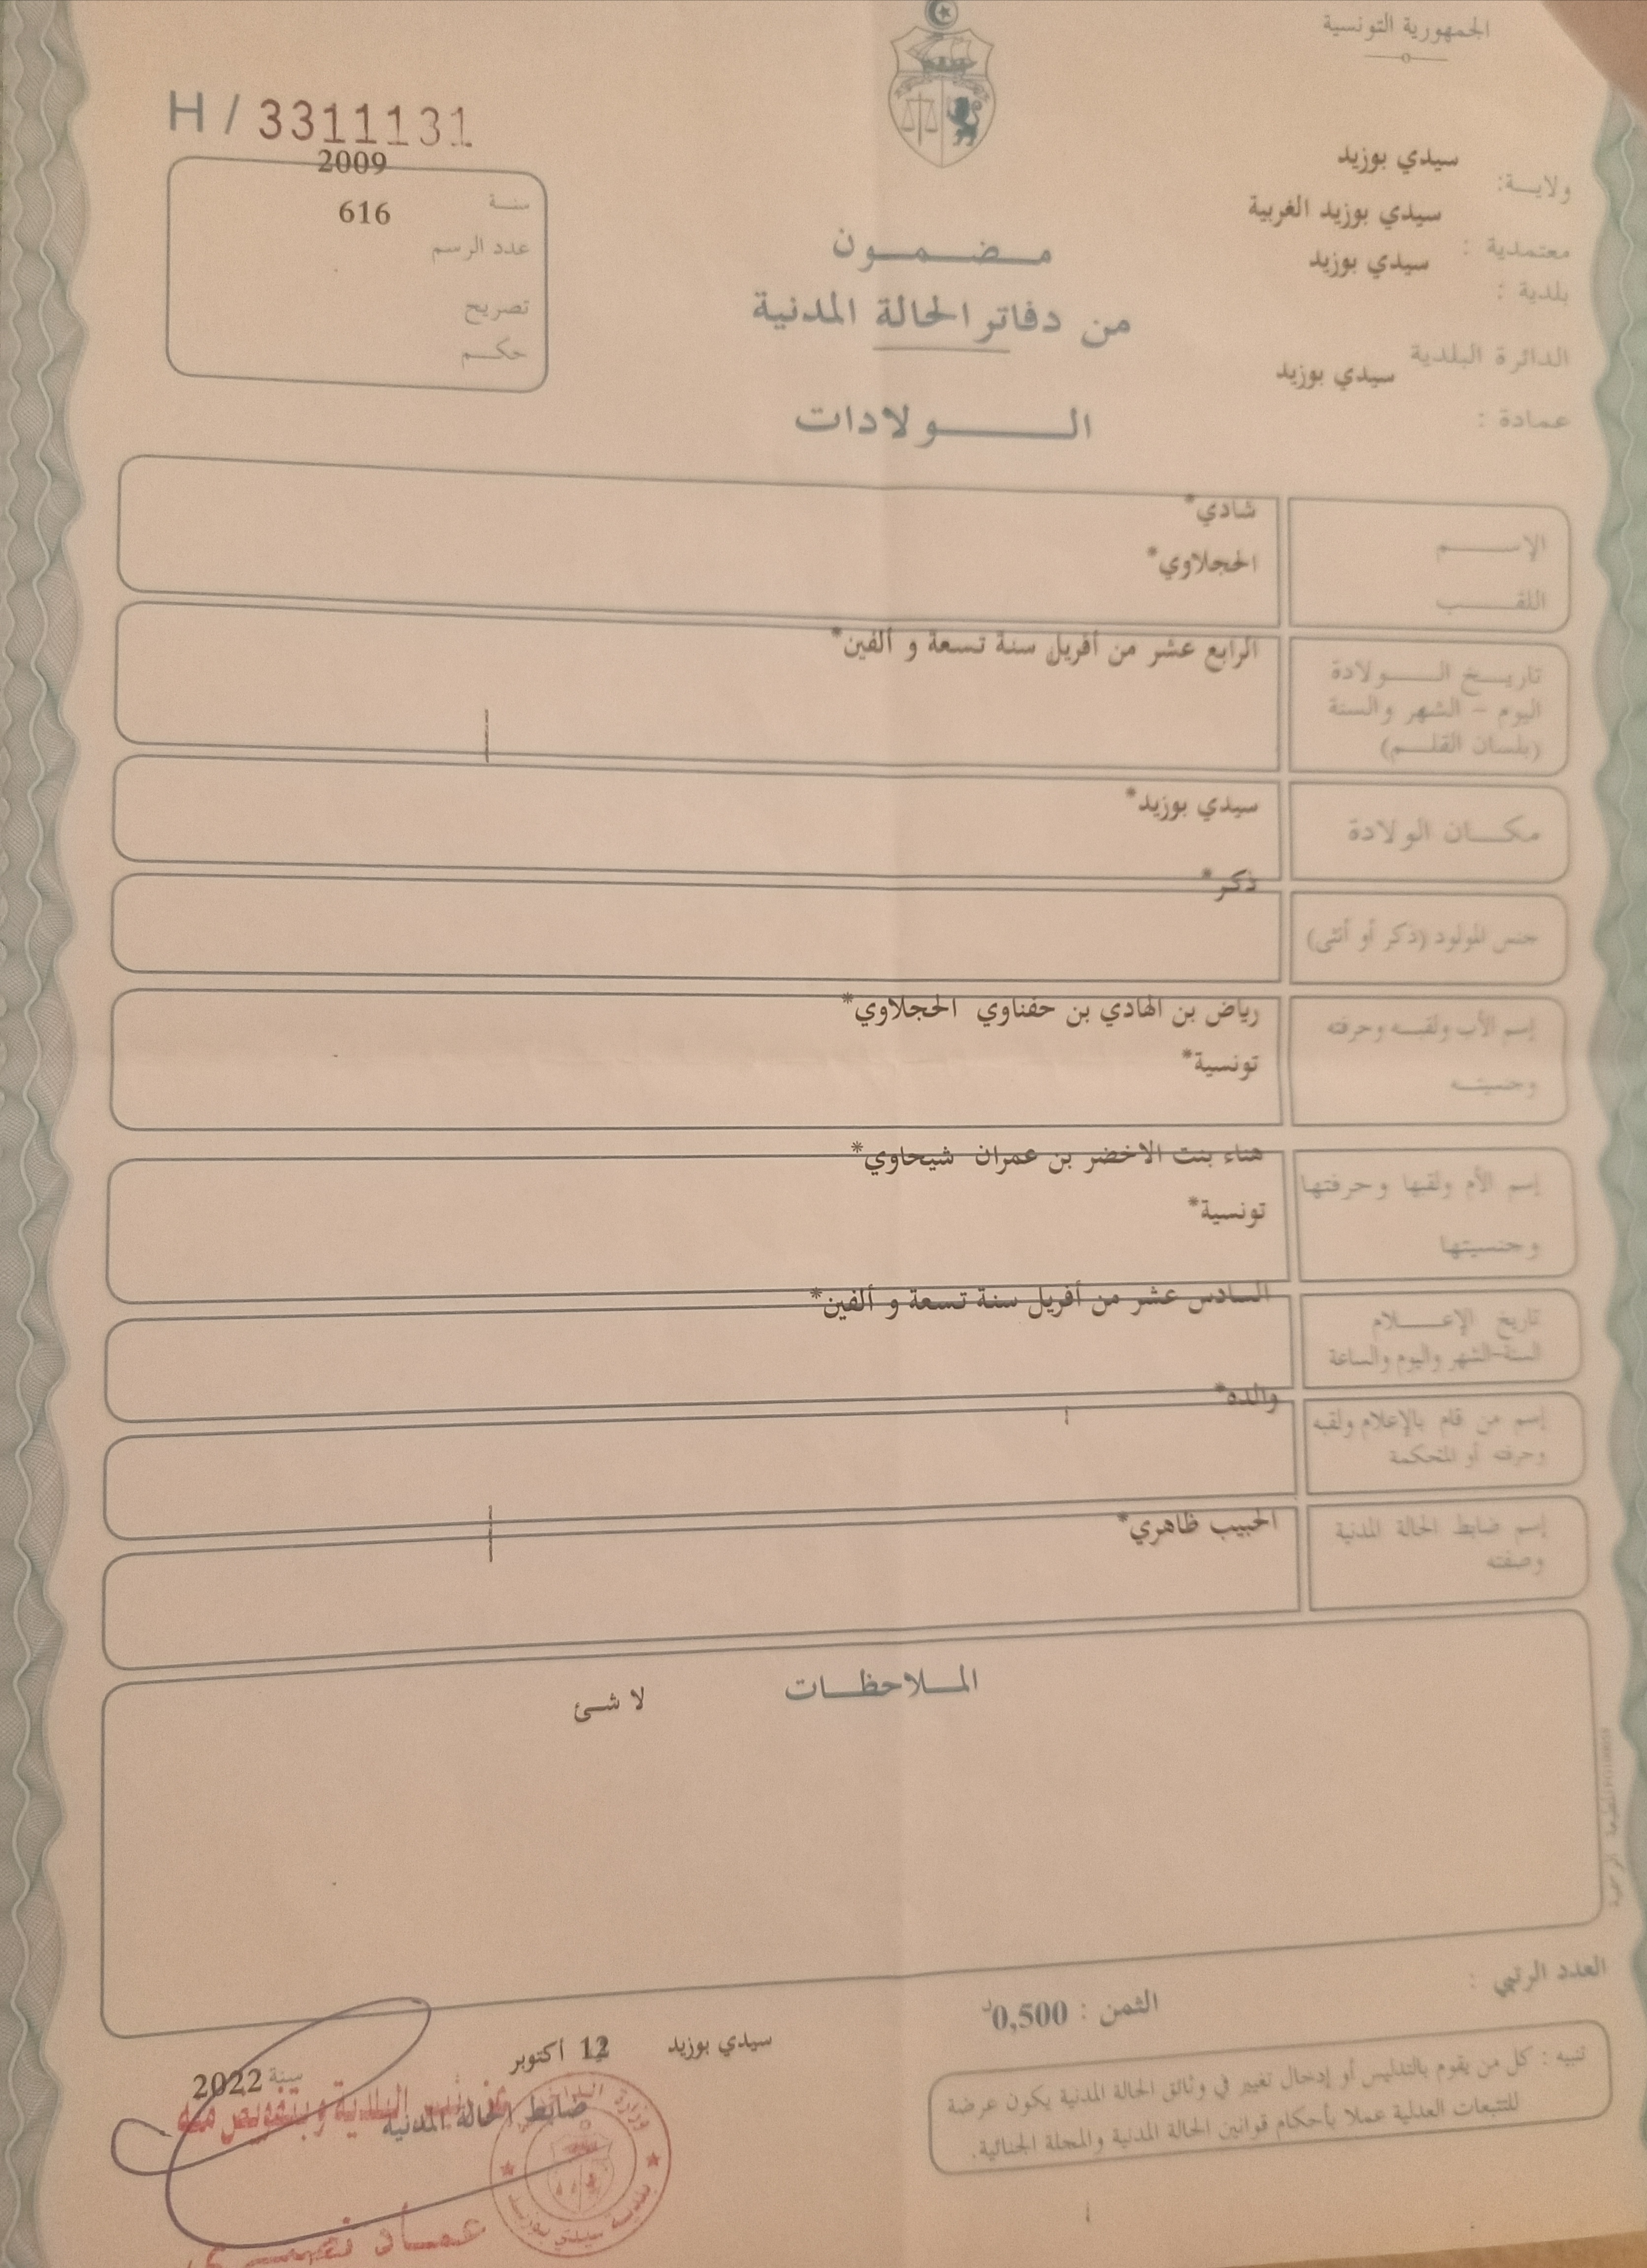 الجمهورية التونسية
H / 3311131
ولاية: سيدي بوزيد
معتمدية : سيدي بوزيد الغربية
بلدية : سيدي بوزيد
الدائرة البلدية سيدي بوزيد
عمادة :
سنة 2009
عدد الرسم 616
تصريح
حكم
مضمون
من دفاتر الحالة المدنية
الولادات
الإسم شادي*
اللقب الحجلاوي*
تاريخ الولادة
اليوم - الشهر والسنة
(بلسان القلم)
الرابع عشر من أفريل سنة تسعة و ألفين*
مكان الولادة سيدي بوزيد*
جنس المولود (ذكر أو أنثى) ذكر*
إسم الأب ولقبه وحرفته رياض بن الهادي بن حفناوي الحجلاوي*
وجنسيته تونسية*
إسم الأم ولقبها وحرفتها هناء بنت الاخضر بن عمران شيحاوي*
وجنسيتها تونسية*
تاريخ الإعلام
السنة-الشهر واليوم والساعة
السادس عشر من أفريل سنة تسعة و ألفين*
إسم من قام بالإعلام ولقبه
وحرفته أو المحكمة
والده*
إسم ضابط الحالة المدنية
وصفته
الحبيب ظاهري*
الملاحظات لا شئ
العدد الرتبي :
الثمن : 0,500د
تنبيه : كل من يقوم بالتدليس أو إدخال تغيير في وثائق الحالة المدنية يكون عرضة
للتتبعات العدلية عملا بأحكام قوانين الحالة المدنية والمجلة الجنائية.
سيدي بوزيد 12 أكتوبر سنة 2022
ضابط الحالة المدنية
عن رئيس البلدية وبتفويض منه
بلدية سيدي بوزيد